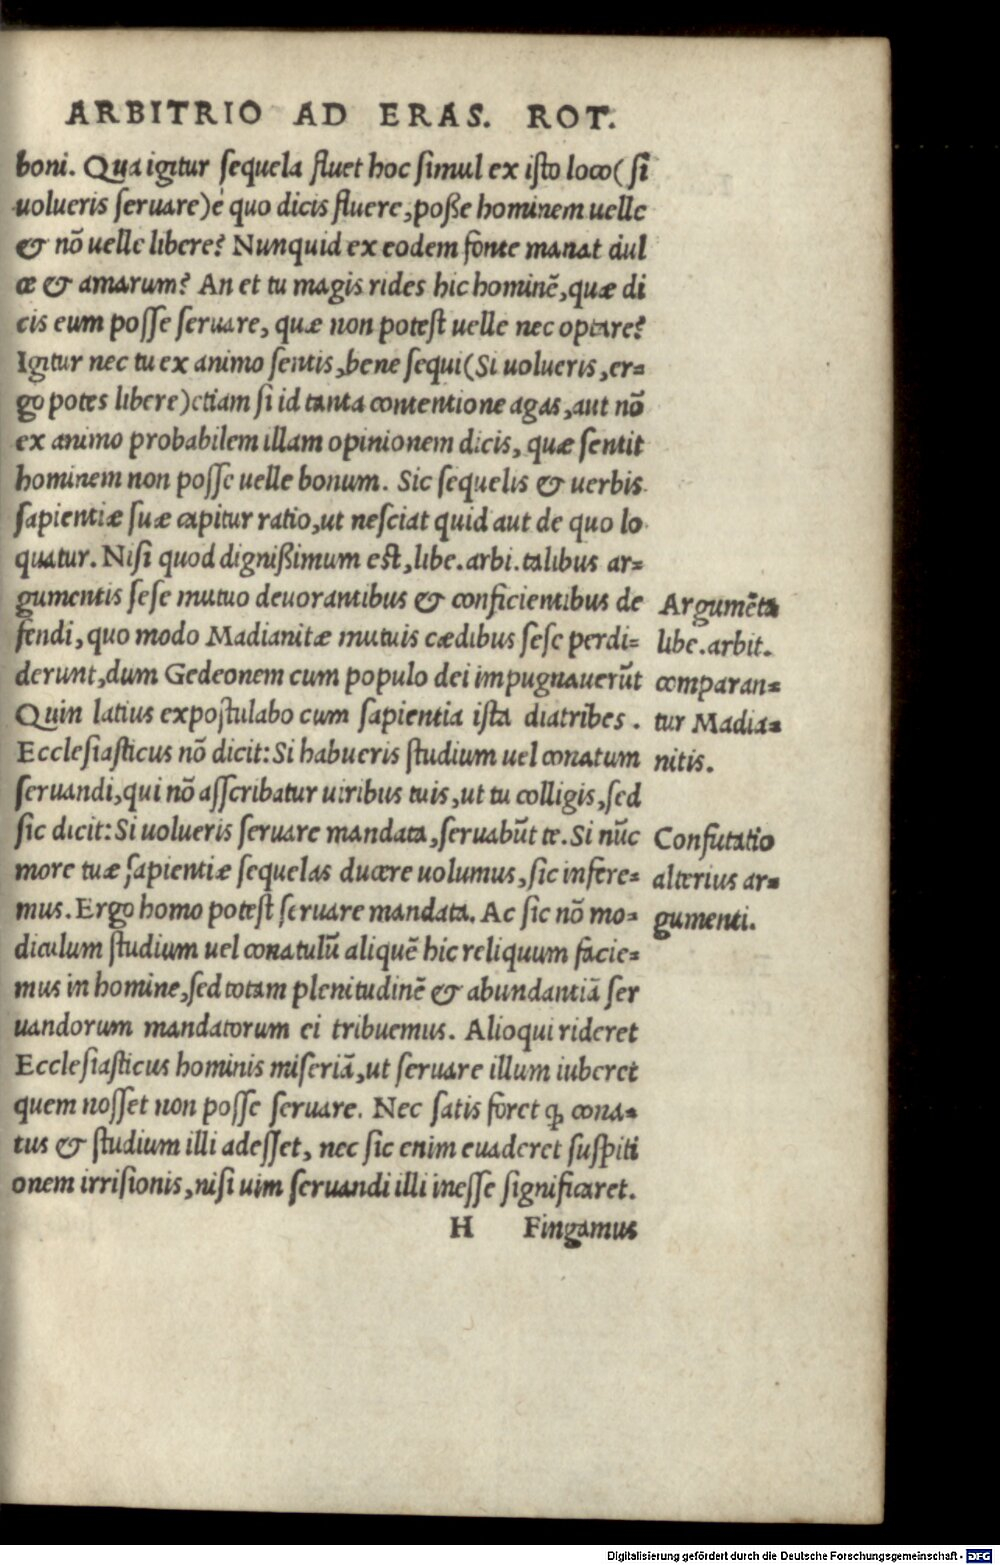 ARBITRIO AD ERAS. ROT.
boni. Qua igitur ſequela fluet hoc ſimul ex iſto loco (ſi
uolueris ſeruare) é quo dicis fluere, poße hominem uelle
& nõ uelle libere? Nunquid ex eodem fonte manat dul
ce & amarum? An et tu magis rides hic hominẽ, quæ di
cis eum poſſe ſeruare, quæ non poteſt uelle nec optare?
Igitur nec tu ex animo ſentis, bene ſequi (Si uolueris, er=
go potes libere) etiam ſi id tanta contentione agas, aut nõ
ex animo probabilem illam opinionem dicis, quæ ſentit
hominem non poſſe uelle bonum. Sic ſequelis & uerbis
ſapientiæ ſuæ capitur ratio, ut neſciat quid aut de quo lo
quatur. Niſi quod dignißimum eſt, libe. arbi. talibus ar=
gumentis ſeſe mutuo deuorantibus & conficientibus de
fendi, quo modo Madianitæ mutuis cædibus ſeſe perdi=
derunt, dum Gedeonem cum populo dei impugnauerũt
Quin latius expoſtulabo cum ſapientia iſta diatribes.
Eccleſiaſticus nõ dicit: Si habueris ſtudium uel conatum
ſeruandi, qui nõ aſſcribatur uiribus tuis, ut tu colligis, ſed
ſic dicit: Si uolueris ſeruare mandata, ſeruabũt te. Si nũc
more tuæ ſapientiæ ſequelas ducere uolumus, ſic infere=
mus. Ergo homo poteſt ſeruare mandata. Ac ſic nõ mo=
diculum ſtudium uel conatulũ aliquẽ hic reliquum facie=
mus in homine, ſed totam plenitudinẽ & abundantiã ſer
uandorum mandatorum ei tribuemus. Alioqui rideret
Eccleſiaſticus hominis miſeriã, ut ſeruare illum iuberet
quem noſſet non poſſe ſeruare. Nec ſatis foret ꝙ cona=
tus & ſtudium illi adeſſet, nec ſic enim euaderet ſuſpiti
onem irriſionis, niſi uim ſeruandi illi ineſſe ſignificaret.
H Fingamus
Argumẽta
libe. arbit.
comparan=
tur Madia=
nitis.
Confutatio
alterius ar=
gumenti.
Digitalisierung gefördert durch die Deutsche Forschungsgemeinschaft - DFG